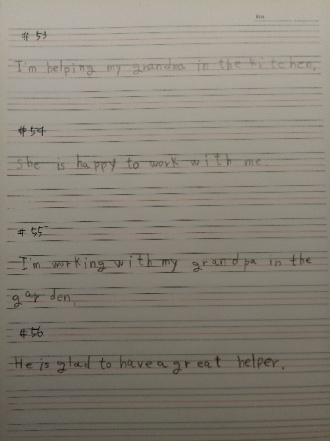 # 53
I'm helping my grandpa in the kitchen.
# 54
She is happy to work with me.
# 55
I'm working with my grandpa in the
garden.
# 56
He is glad to have a great helper.